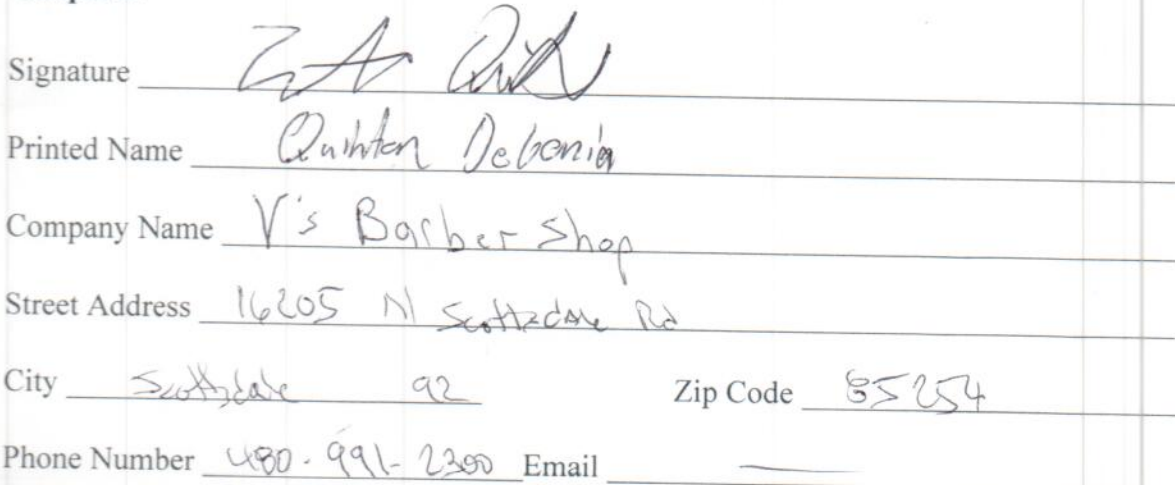 Signature
Printed Name Quinton Debenia
Company Name V's Barber Shop
Street Address 16205 N Scottsdale Rd
City Scottsdale az Zip Code 85254
Phone Number 480-991-2300 Email